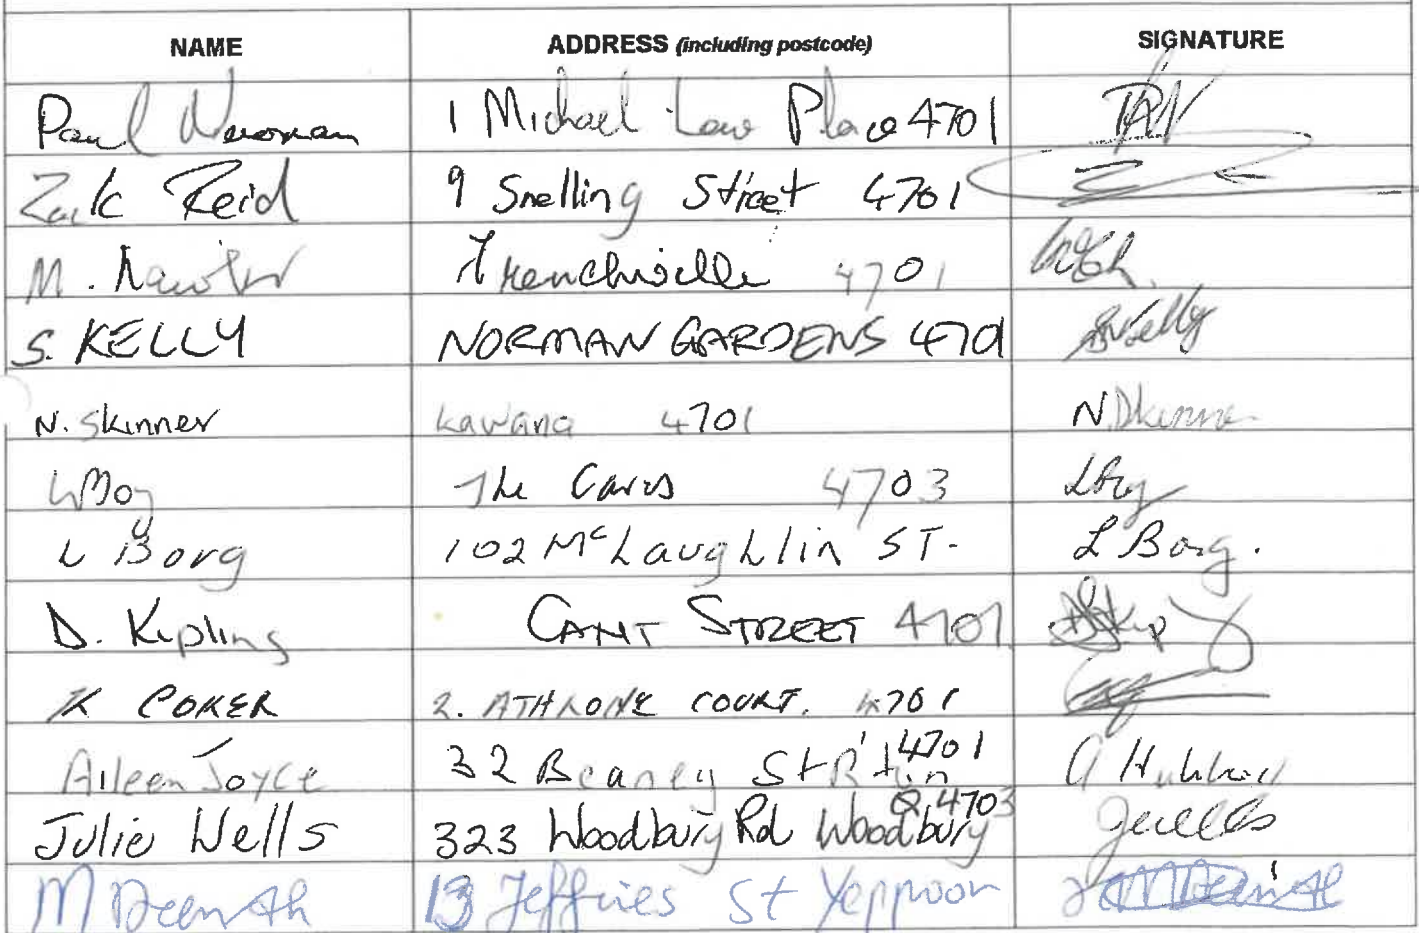 NAME ADDRESS (including postcode) SIGNATURE
Paul Newman 1 Michael Law Place 4701
Zack Reid 9 Snelling Street 4701
M. Frenchville 4701
S. KELLY NORMAN GARDENS 4701 SKelly
N. Skinner Kawana 4701 N. Skinner
The Caves 4703
L Borg 102 McLaughlin ST. L Borg.
D. Kipling CANT STREET 4701
K COKER 2. ATHLONE COURT. 4701
Aileen Joyce 32 Beaney St R'ton 4701
Julie Wells 323 Woodbury Rd Woodbury Q 4703 JWells
M 13 Jeffries St Yeppoon